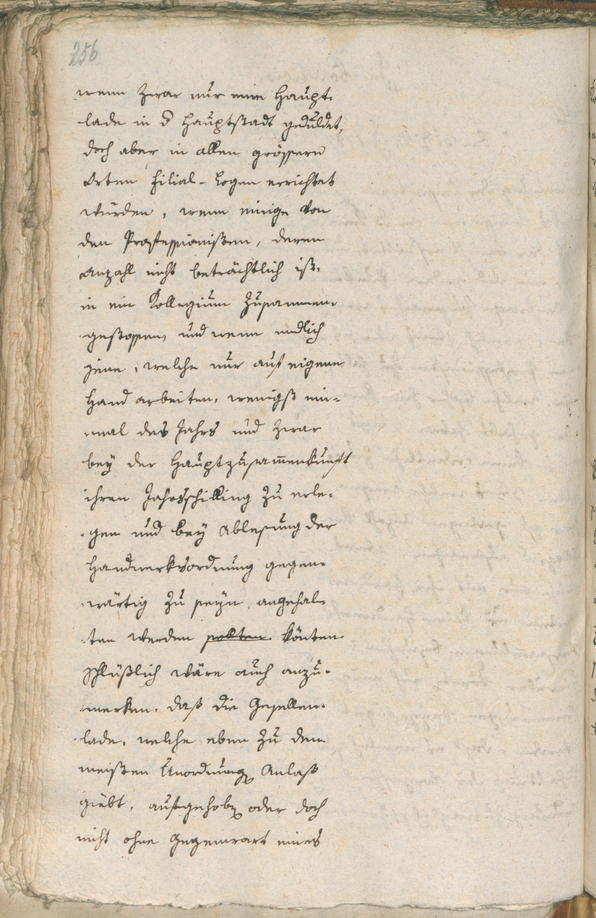 256
wenn Zwar nur eine Haupt-
lade in d Hauptstadt geduldet,
doch aber in allen grössern
Orten Filial-Logen errichtet
würden, wenn einige von
den Professionisten, deren
Anzahl nicht beträchtlich ist,
in ein Kollegium Zusammen-
gestossen, und wenn endlich
jene, welche nur auf eigene
Hand arbeiten, wenigst ein-
mal des Jahrs und Zwar
bey der Hauptzusam̄enkunft
ihren Jahrsschilling Zu erle-
gen und bey Ablesung der
Handwerksordnung gegen-
wärtig Zu seyn, angehal-
ten werden sollten könten
Schlüßlich wäre auch anzu-
merken, daß die Gesellen-
lade, welche eben Zu dem
meisten Unordnung Anlaß
giebt, aufgehobn oder doch
nicht ohne Gegenwart eines